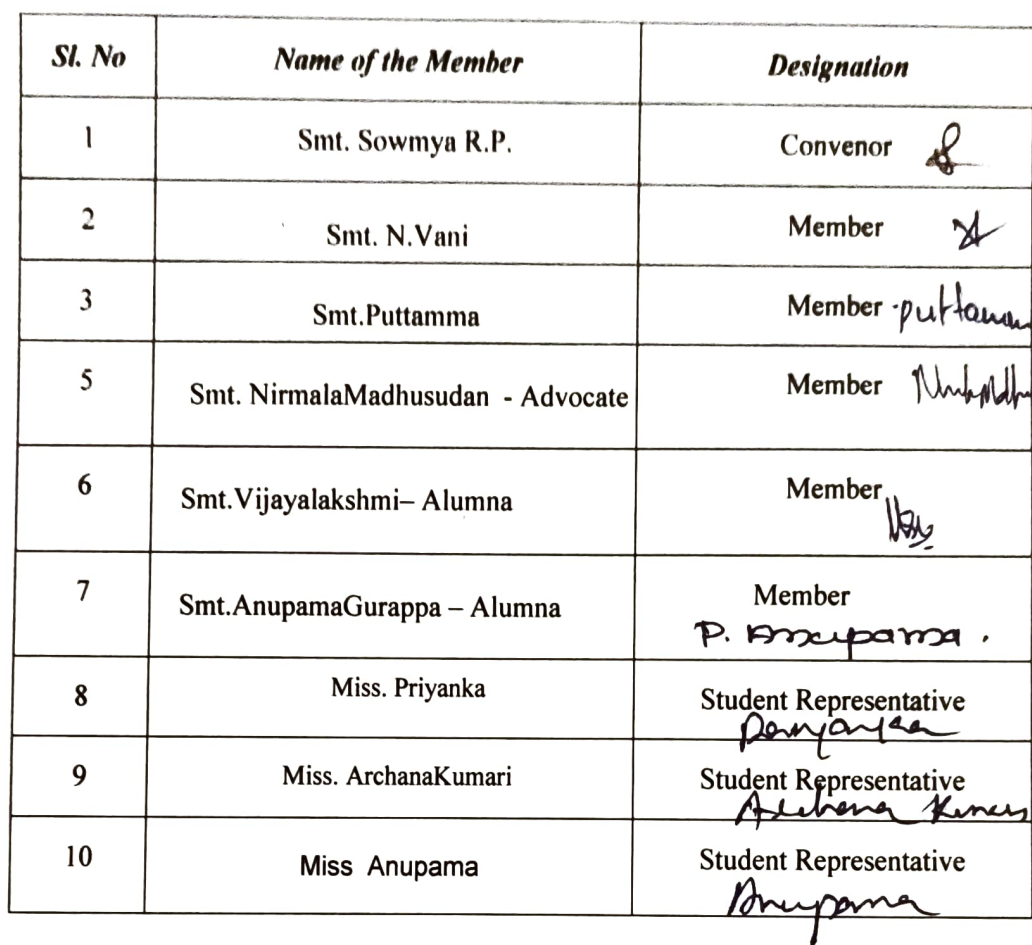 Sl. No Name of the Member Designation
1 Smt. Sowmya R.P. Convenor
2 Smt. N.Vani Member
3 Smt.Puttamma Member puttamma
5 Smt. NirmalaMadhusudan - Advocate Member
6 Smt.Vijayalakshmi– Alumna Member
7 Smt.AnupamaGurappa – Alumna Member
P. Anupama.
8 Miss. Priyanka Student Representative
Priyanka
9 Miss. ArchanaKumari Student Representative
Archana Kumari
10 Miss Anupama Student Representative
Anupama